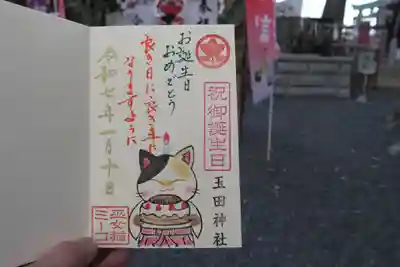 お誕生日
おめでとう
良き日に良き年に
なりますように
令和七年一月十日
祝御誕生日
玉田神社
巫女猫
ミーコ